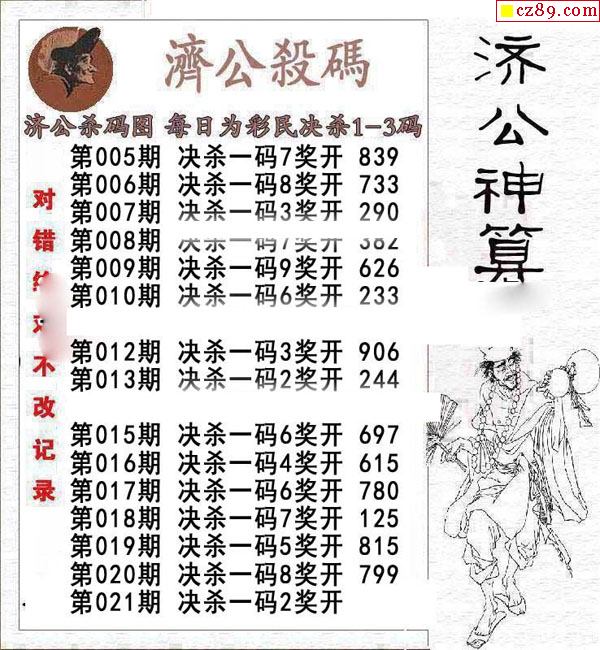 cz89.com
濟公殺碼
济公杀码图 每日为彩民决杀1-3码
第005期 决杀一码7奖开 839
第006期 决杀一码8奖开 733
第007期 决杀一码3奖开 290
第008期 决杀一码7奖开 382
第009期 决杀一码9奖开 626
第010期 决杀一码6奖开 233
第012期 决杀一码3奖开 906
第013期 决杀一码2奖开 244
第015期 决杀一码6奖开 697
第016期 决杀一码4奖开 615
第017期 决杀一码6奖开 780
第018期 决杀一码7奖开 125
第019期 决杀一码5奖开 815
第020期 决杀一码8奖开 799
第021期 决杀一码2奖开
对错 不改记录
济公神算